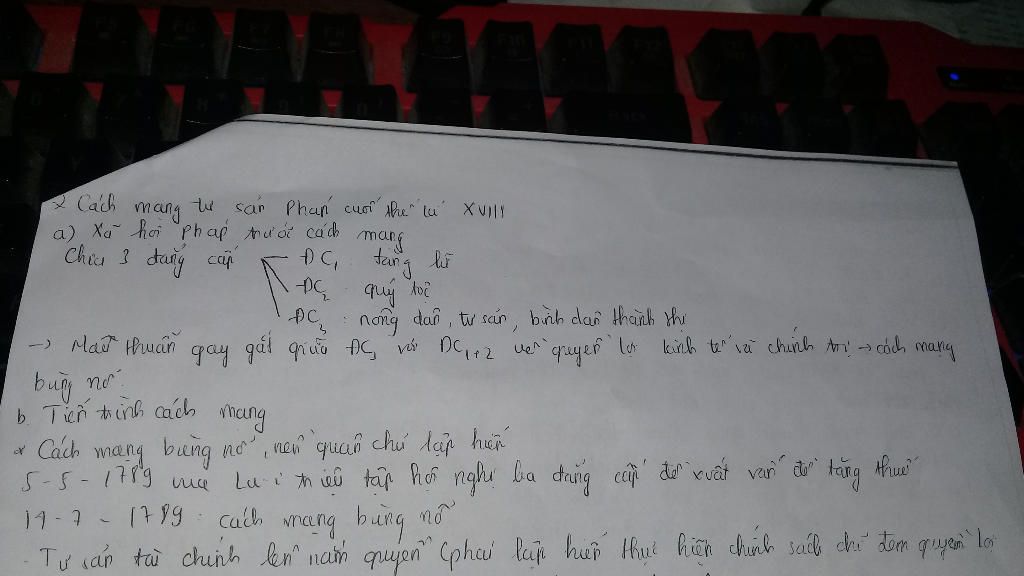 2 Cách mạng tư sản Pháp cuối thế kỉ XVIII
a) Xã hội Pháp trước cách mạng
Chia 3 đẳng cấp ĐC1 : tăng lữ
ĐC2 : quý tộc
ĐC3 : nông dân, tư sản, bình dân thành thị
-> Mâu thuẫn gay gắt giữa ĐC3 với ĐC1+2 về quyền lợi kinh tế và chính trị -> cách mạng
bùng nổ.
b. Tiến trình cách mạng
* Cách mạng bùng nổ, nền quân chủ lập hiến
5-5-1789 vua Lu-i triệu tập hội nghị ba đẳng cấp đề xuất vấn đề tăng thuế
14-7-1789: cách mạng bùng nổ
- Tư sản tài chính lên nắm quyền (phái lập hiến thực hiện chính sách chỉ đem quyền lợi